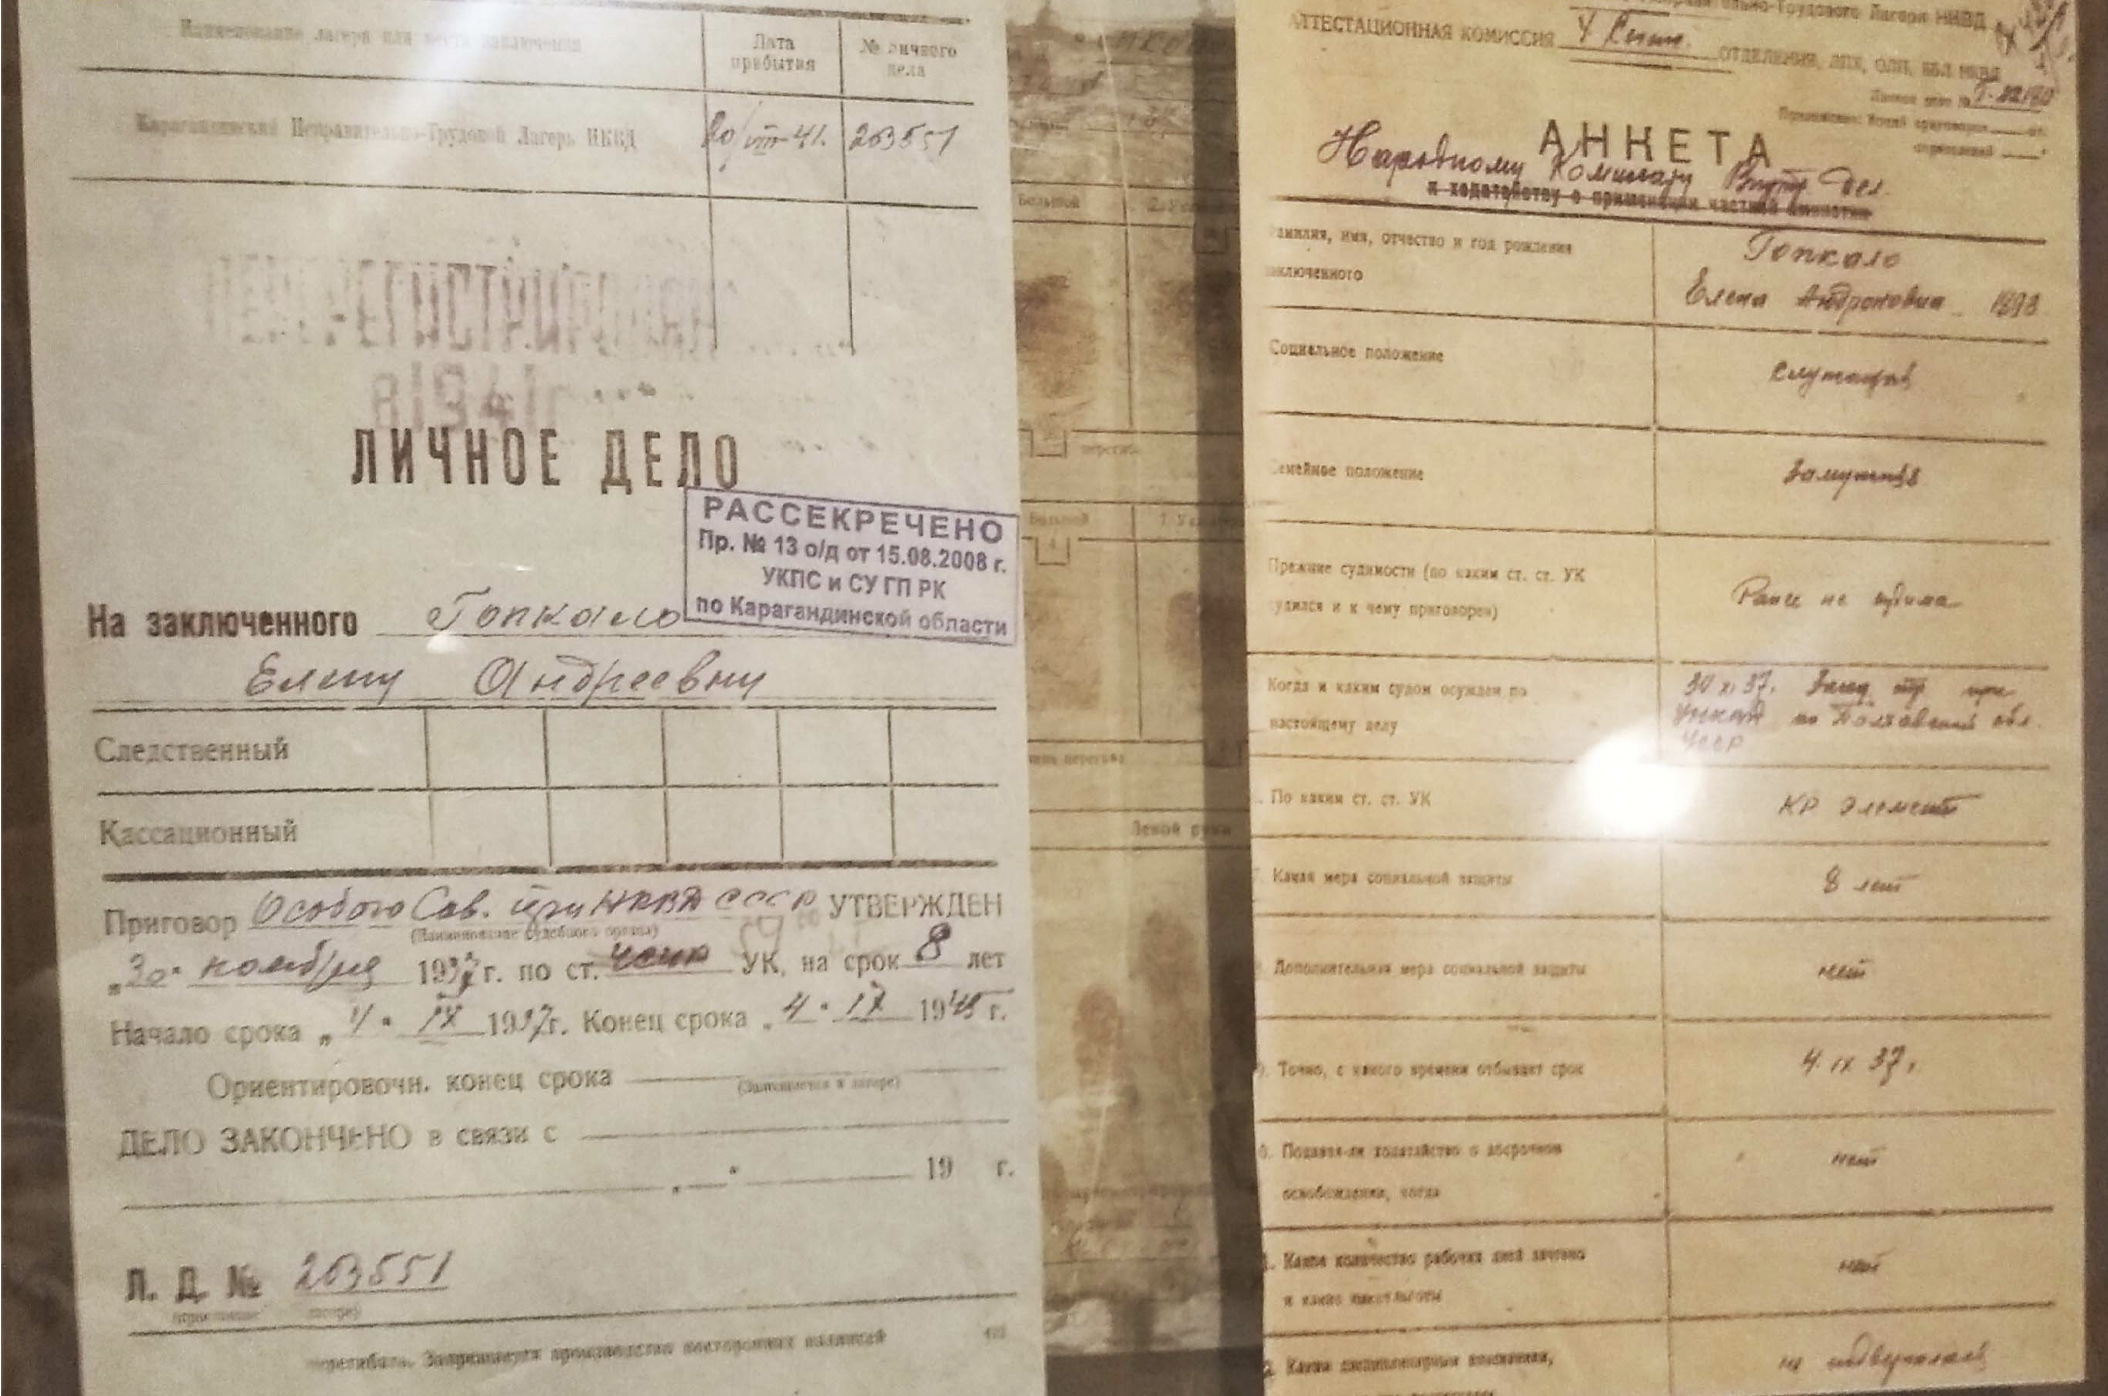 Наименование лагеря или места заключения
Дата прибытия
№ личного дела
Карагандинский Исправительно-Трудовой Лагерь НКВД
20/VIII-41.
263551
ЛИЧНОЕ ДЕЛО
РАССЕКРЕЧЕНО
Пр. № 13 о/д от 15.08.2008 г.
УКПС и СУ ГП РК
по Карагандинской области
На заключенного Гопкало
Елену Андреевну
Следственный
Кассационный
Приговор Особого Сов. при НКВД СССР УТВЕРЖДЕН
(Наименование судебного органа)
„30" ноября 1937 г. по ст. УК, на срок 8 лет
Начало срока „4" IX 1937г. Конец срока „4" IX 1945 г.
Ориентировочн. конец срока
(Заполняется в лагере)
ДЕЛО ЗАКОНЧЕНО в связи с
19 г.
Л. Д. № 263551
перегибать. Запрещается производство посторонних надписей
Большой
перегиба
Большой
Левой руки
Трудового Лагеря НКВД
АТТЕСТАЦИОННАЯ КОМИССИЯ ОТДЕЛЕНИЯ, ЛПХ, ОЛП, НКВД
Личное дело №
АНКЕТА
Народному Комиссару Внутр дел.
к ходатайству о применении частной амнистии
Фамилия, имя, отчество и год рождения
заключенного
Гопкало
Елена Андроновна 1898
Социальное положение
служащая
Семейное положение
Замужняя
Прежние судимости (по каким ст. ст. УК
судился и к чему приговорен)
Ранее не судима
Когда и каким судом осужден по
настоящему делу
30 XI 37г. при
УНКВД по Полтавской обл.
УССР
По каким ст. ст. УК
КР Элемент
7. Какая мера социальной защиты
8 лет
Дополнительная мера социальной защиты
нет
9. Точно, с какого времени отбывает срок
4. IX 37г.
0. Подавал-ли ходатайство о досрочном
освобождении, когда
нет
1. Какое количество рабочих дней зачтено
и какие имеет льготы
нет
2. Какие дисциплинарные взыскания,
не подвергалась